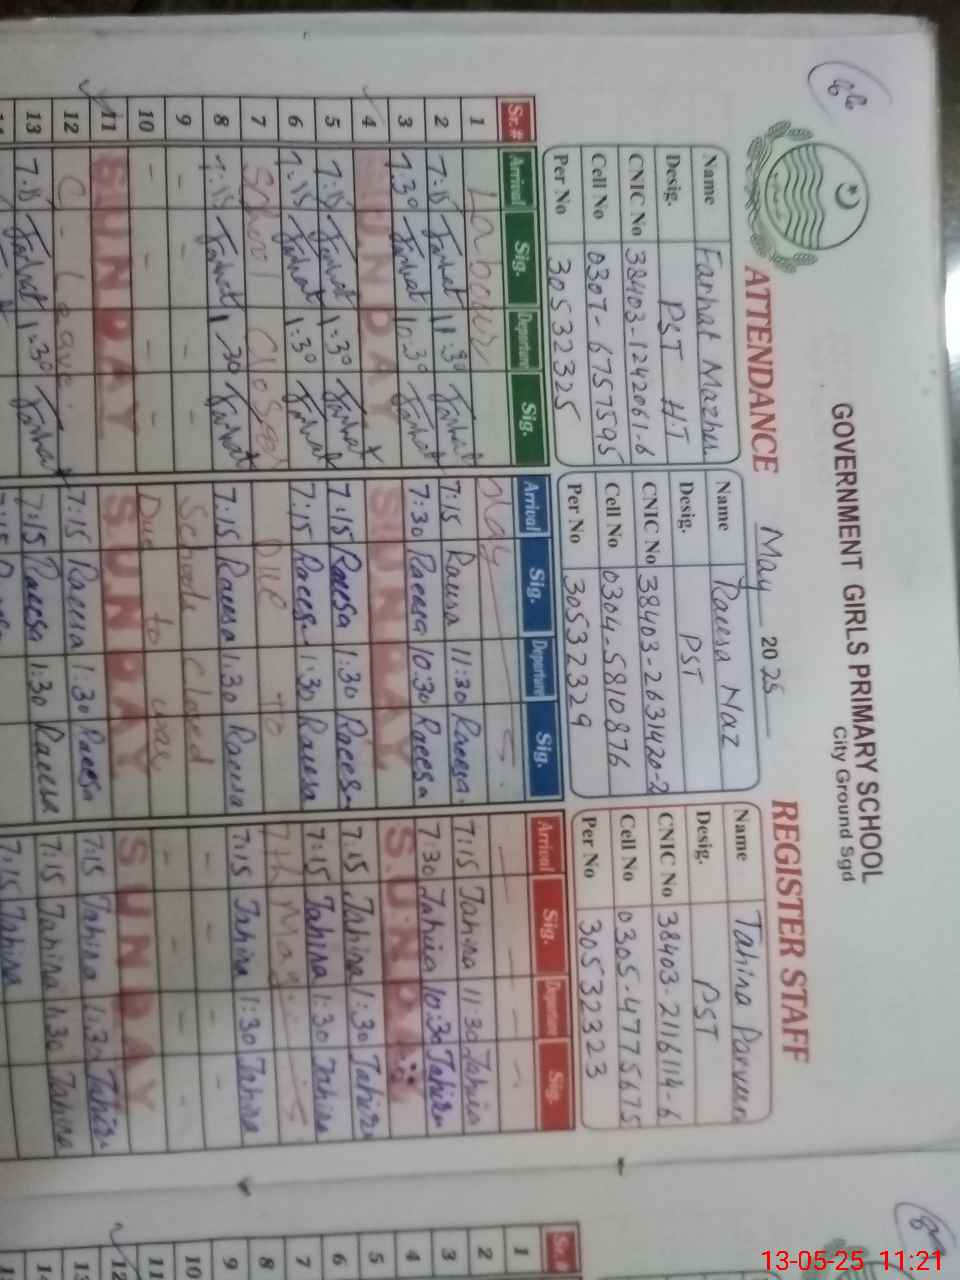 GOVERNMENT GIRLS PRIMARY SCHOOL
City Ground Sgd
ATTENDANCE May 2025 REGISTER STAFF
Name Farhat Mazher
Desig. PST H.T
CNIC No 38403-1242061-6
Cell No 0307-6757595
Per No 30532325
Name Raeesa Naz
Desig. PST
CNIC No 38403-2631420-2
Cell No 0304-5810876
Per No 30532329
Name Tahira Parveen
Desig. PST
CNIC No 38403-2116114-6
Cell No 0305-4775675
Per No 30532323
Sr.# Arrival Sig. Departure Sig. Arrival Sig. Departure Sig. Arrival Sig. Departure Sig.
1 Labour, day s. - - - -
2 7:15 Farhat 11:30 Farhat 7:15 Raeesa 11:30 Raeesa 7:15 Tahira 11:30 Tahira
3 7:30 Farhat 10:30 Farhat 7:30 Raeesa 10:30 Raeesa 7:30 Tahira 10:30 Tahira
4 SUNDAY SUNDAY SUNDAY
5 7:15 Farhat 1:30 Farhat 7:15 Raeesa 1:30 Raeesa 7:15 Tahira 1:30 Tahira
6 7:15 Farhat 1:30 Farhat 7:15 Raeesa 1:30 Raeesa 7:15 Tahira 1:30 Tahira
7 School Closed Due To 7th May
8 7:15 Farhat 1:30 Farhat 7:15 Raeesa 1:30 Raeesa 7:15 Tahira 1:30 Tahira
9 - - - - Schools closed - - - -
10 - - - - Due to war - - - -
11 SUNDAY SUNDAY SUNDAY
12 C - Leave 7:15 Raeesa 1:30 Raeesa 7:15 Tahira 1:30 Tahira
13 7:15 Farhat 1:30 Farhat 7:15 Raeesa 1:30 Raeesa 7:15 Tahira 1:30 Tahira
7:15 Tahira
Sr.#
1
2
3
4
5
6
7
8
9
10
11
12
13-05-25 11:21